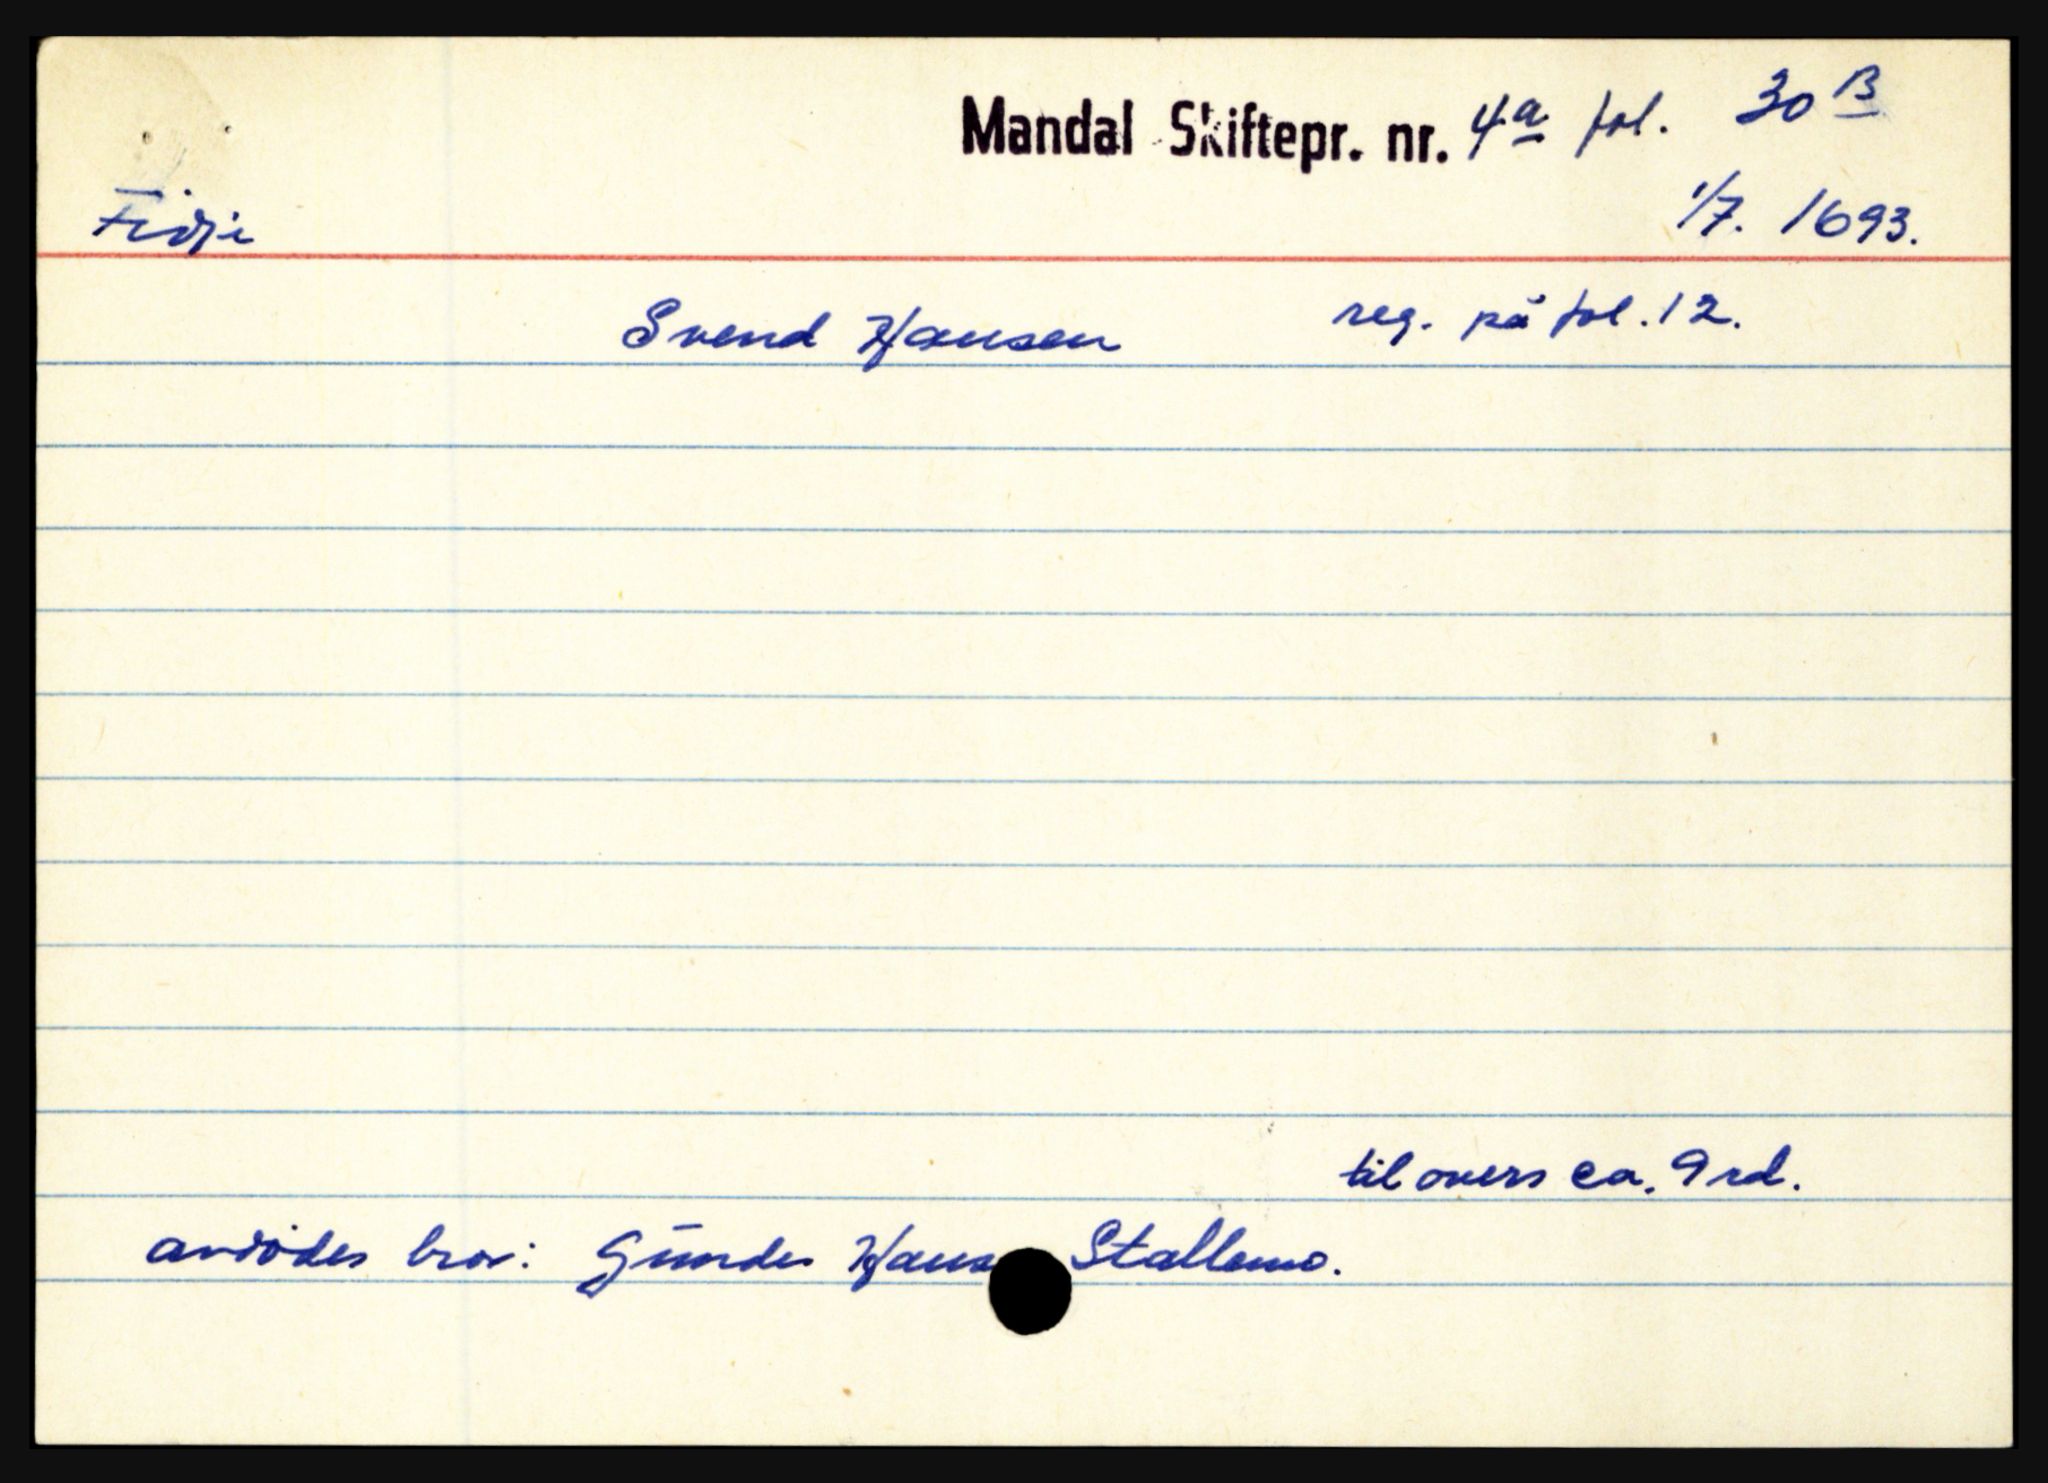 Mandal Skiftepr. nr. 4a fol. 30 B
Fidje 1/7. 1693.
Svend Hansen reg. på fol. 12.
til overs ca. 9 rd.
avdødes bror: Gunder Hans Stallemo.